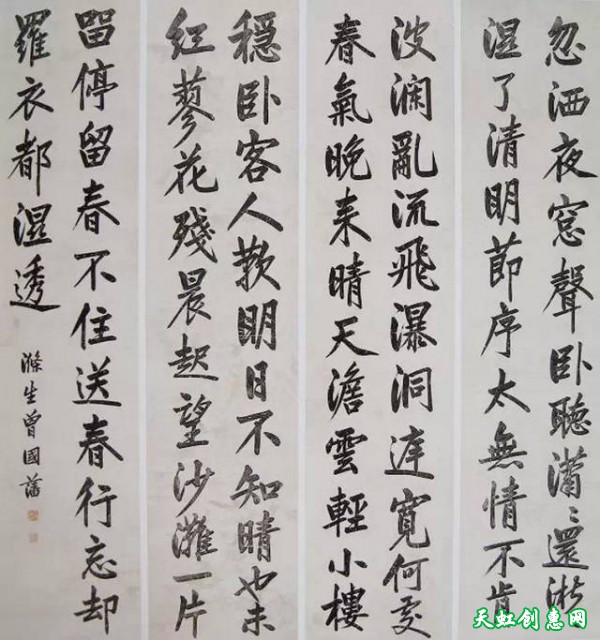 忽洒夜窓聲卧聽瀟〻還淅
湿了清明莭序太無情不肯
波瀾亂流飛瀑洞㢊寛何處
春氣晚来晴天澹雲輕小樓
穏卧客人歎明日不知晴也未
红蓼花殘晨起望沙灘一片
畱停留春不住送春行忘却
羅衣都濕透
滌生曾國藩
天虹创惠网